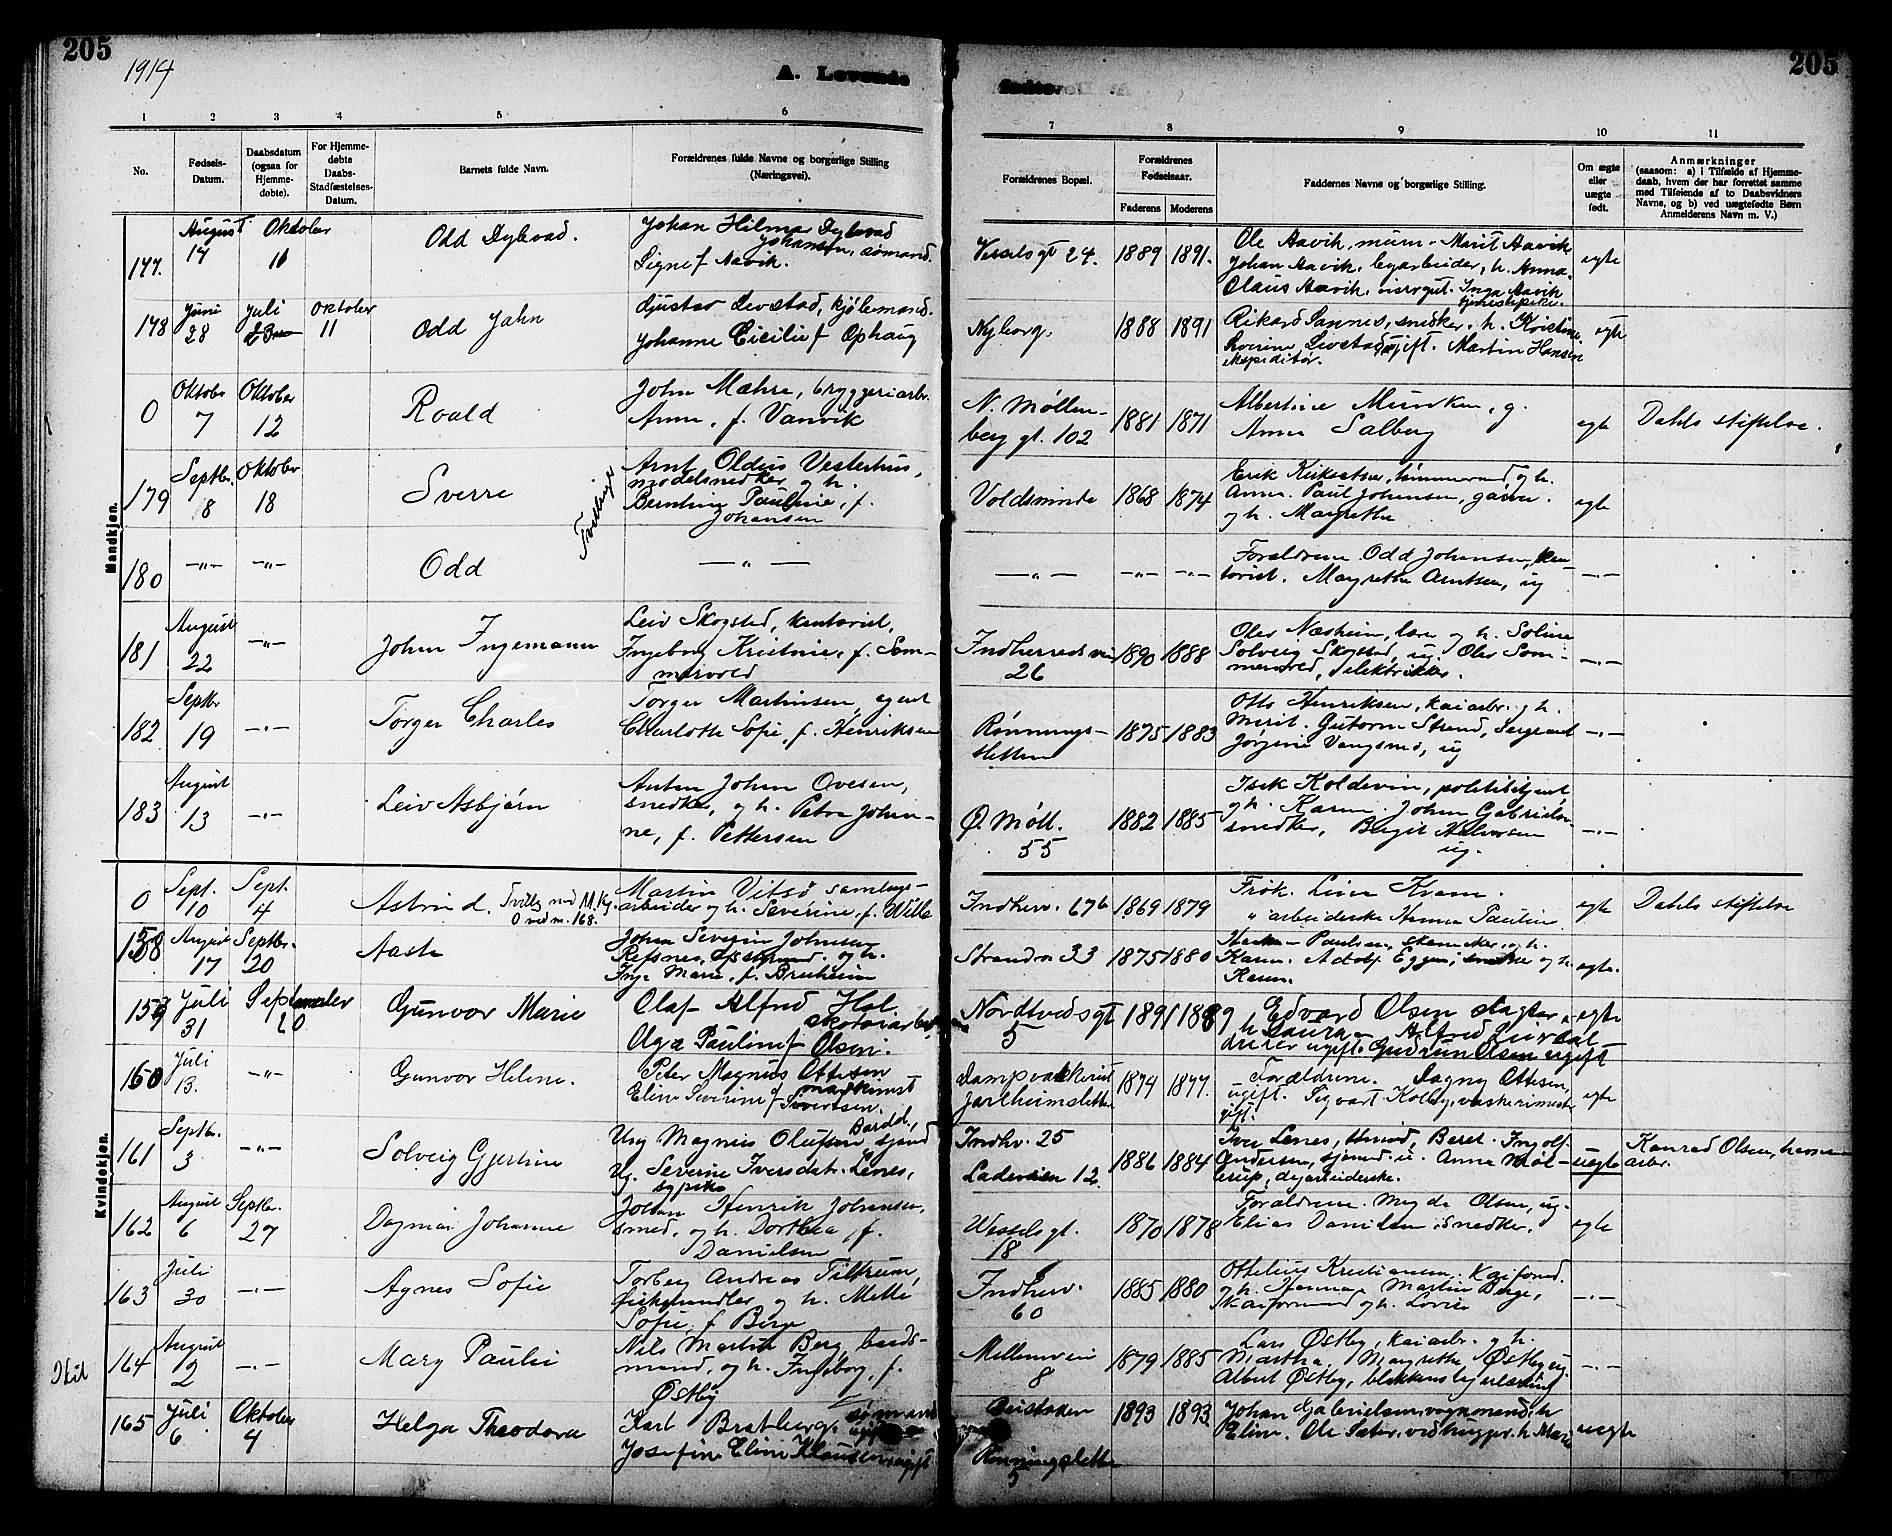 205
205
1914
A. Levende
1
2
3
4
5
6
7
8
9
10
11
No.
Fødsels-
Datum.
Daabsdatum
(ogsaa for
Hjemme-
døbte).
For Hjemme-
døbte
Daabs-
Stadfæstelses-
Datum.
Barnets fulde Navn.
Forældrenes fulde Navne og borgerlige Stilling
(Næringsvei).
Forældrenes Bopæl.
Forældrenes
Fødselsaar.
Faderens
Moderens
Faddernes Navne og borgerlige Stilling.
Om ægte
eller
uægte
født.
Anmærkninger
(saasom: a) i Tilfælde af Hjemme-
daab, hvem der har forrettet samme
med Tilføiende af to Daabsvidners
Navne, og b) ved uægtefødte Børn
Anmelderens Navn m. V.)
Mandkjøn.
177. August 17 Oktober 11
Odd Dybvad.
Johan Hilmar Dybvad
Johansen, sømand.
Signe f Aavik.
Vesselsgt 24. 1889 1891.
Ole Aavik, murer. Marit Aavik
Johan Aavik, h. Anna.
Claus Aavik, Inga Aavik
tjenestepike.
egte
178 Juni 28 Juli Oktober 11
Odd Jahn
Gustav Livstad, kjølemand.
Johanne Cicilie f Ophaug
Nyborg. 1888 1891
Rikard Sannes, snedker. h. Kristine
Martin Hansen
ekspeditør.
egte
0 Oktober 7 Oktober 12
Roald
John Mæhre, bryggeriarb.
Anna, f. Vanvik
N. Møllen-
berg gt. 102 1881 1871
Albertine Munken, g.
Anna Salberg
egte
Dahls stiftelse.
179 Septbr. 8 Oktober 18
Sverre
Tvillinger
Arnt Oldius Vesterhus,
modelsnedker og h.
Berntine Pauline, f.
Johansen
Voldsminde 1868 1874
Erik tømmermand og h.
Anna. Paul Johansen, garver
og h. Margrethe
egte
180 —"— —"—
Odd
— " —
— " — —"— —"—
Forældrene. Odd Johansen, kon-
torist. Margrethe Arntsen, ug
—"—
181 August 22 —"—
John Ingemann
Leiv Skogstad, kontorist,
Ingeborg Kristine, f. Som-
mervold
Indherredsvei
26 1890 1888
Olev Næsheim, lærer og h. Soline
Solveig Skogstad, ug. Olev Som-
mervold, elektriker.
—"—
182 Septbr 19 —"—
Torger Charles
Torger Martinsen, agent
Charlotte Sofie, f. Henriksen
Rønnings-
sletten 1875 1883
Otto Henriksen, kaiarb. og h.
Merit. Gutorm Strand, Sergeant
Jørgine Vangsmo, ug
—"—
183 August 13 —"—
Leiv Asbjørn
Anton Johan Ovesen,
snedker, og h. Petra Johan-
ne, f. Pettersen
Ø. Møll.
55 1882 1885
Isak Koldevin, politibetjent
og h. Karen. Johan Gabrielsen
snedker, Birgit Halvorsen
ug.
—"—
Kvindekjøn.
0 Sept. 10 Sept. 4
Astrid. Tvilling med M.Kj.
0 ved n. 168.
Martin Vitsø samlags-
arbeider og h. Severine, f. Wille
Indherv. 67b 1869 1879
Frøk. Lina Kvam.
" arbeiderske Hanna Paulsen
egte
Dahls stiftelse
158 August 17 Septbr. 20
Aasta
Johan Severin Johnsen
Refsnes, og h.
Inga Marie, f. Bruheim
Strandv. 33 1875 1880
Paulsen, og h.
Karen. Adolf Eggen, snedker og h.
Karen.
egte.
159 Juli 31 September 20
Gunvor Marie
Olaf Alfred Hol
skotøiarbeider
Olga Pauline f Olsen.
Nordtvedsgt
5 1891 1889
Edvard Olsen slagter,
h Laura Alfred
ugift. Gudrun Olsen ugift
egte
160 Juli 13. —"—
Gunvor Helene.
Peter Magnus Ottesen
maskinist
Eline Severine f Sivertsen.
Dampvaskeriet
Jarlheimsletten 1874 1877.
Forældrene. Dagny Ottesen,
ugift. Sigvart Kolby, vaskerimester
gift.
egte
161 Septbr. 3 —"—
Solveig Gjertine
Ung Magnus Olufsen Bardal, sjømd
Ug. Severine Iversdat. Lenes,
sypike
Indhv. 25
Ladeveien 12. 1886 1884
Iver Lenes, Beret. Ingolf
Andersen, sjømd. u. Anna Møl-
lerup,
uegte
Konrad Olsen, havne
arbr.
162 August 6 Septbr. 27
Dagmar Johanne
Johan Henrik Johansen,
smed, og h. Dorthea, f.
Danielsen
Wesselsgt.
18 1870 1878
Forældrene. Magda Olsen, ug.
Elias Danielsen, snedker.
egte
163 Juli 30 —"—
Agnes Sofie
Torberg Andreas Tiltrum,
fiskehandler og h. Mette
Sofie, f. Berge
Indherv.
60 1885 1880
Ottelius Kristiansen. Kaiformd.
og h. Hanna. Martin Berge,
Kaiformand og h. Lovise
—"—
164 August 2 —"—
Mary Paulie
Nils Martin Berg, baads-
mand, og h. Ingeborg, f.
Østby
Mellemveien
8 1879 1885
Lars Østby, kaiarb. og h.
Martha. Margrethe Østby ug
Albert Østby, blikkenslagerlærling
—"—
165 Juli 6 Oktober 4
Helga Theodora
Karl Bratberg, sømand
ugift
Josefine Eline Klausen ugift
Beistaden
Rønningsletten
5 1893 1893
Johan Gabrielsen, vognmand, h
Eline. Ole Sæter, vedhugger, h. Marie
uegte